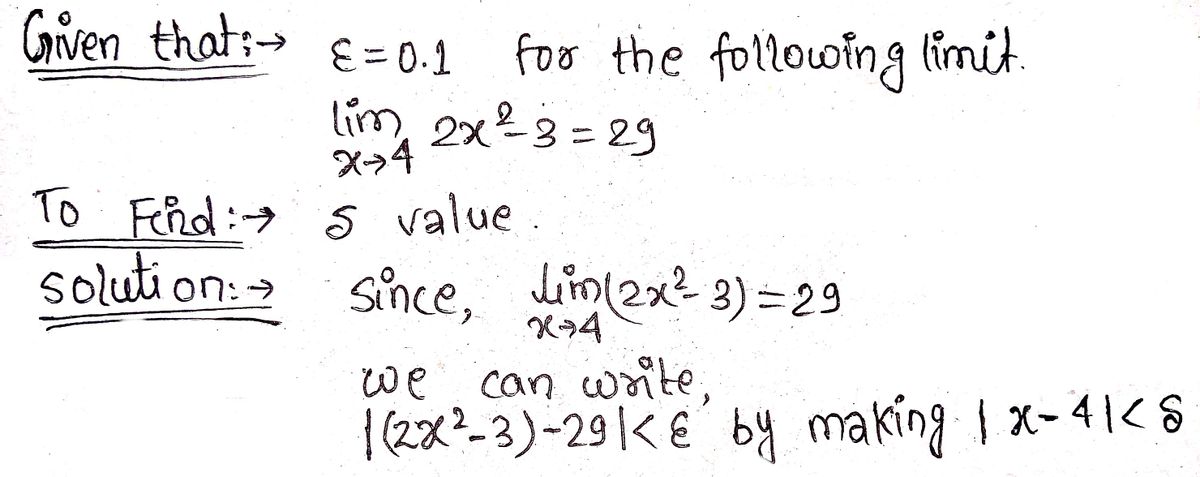 Given that:→ ε = 0.1 for the following limit.
lim x→4 2x²-3 = 29
To Find:→ δ value.
solution:→ Since, lim x→4 (2x²-3) = 29
we can write,
|(2x²-3)-29|< ε by making |x-4|< δ